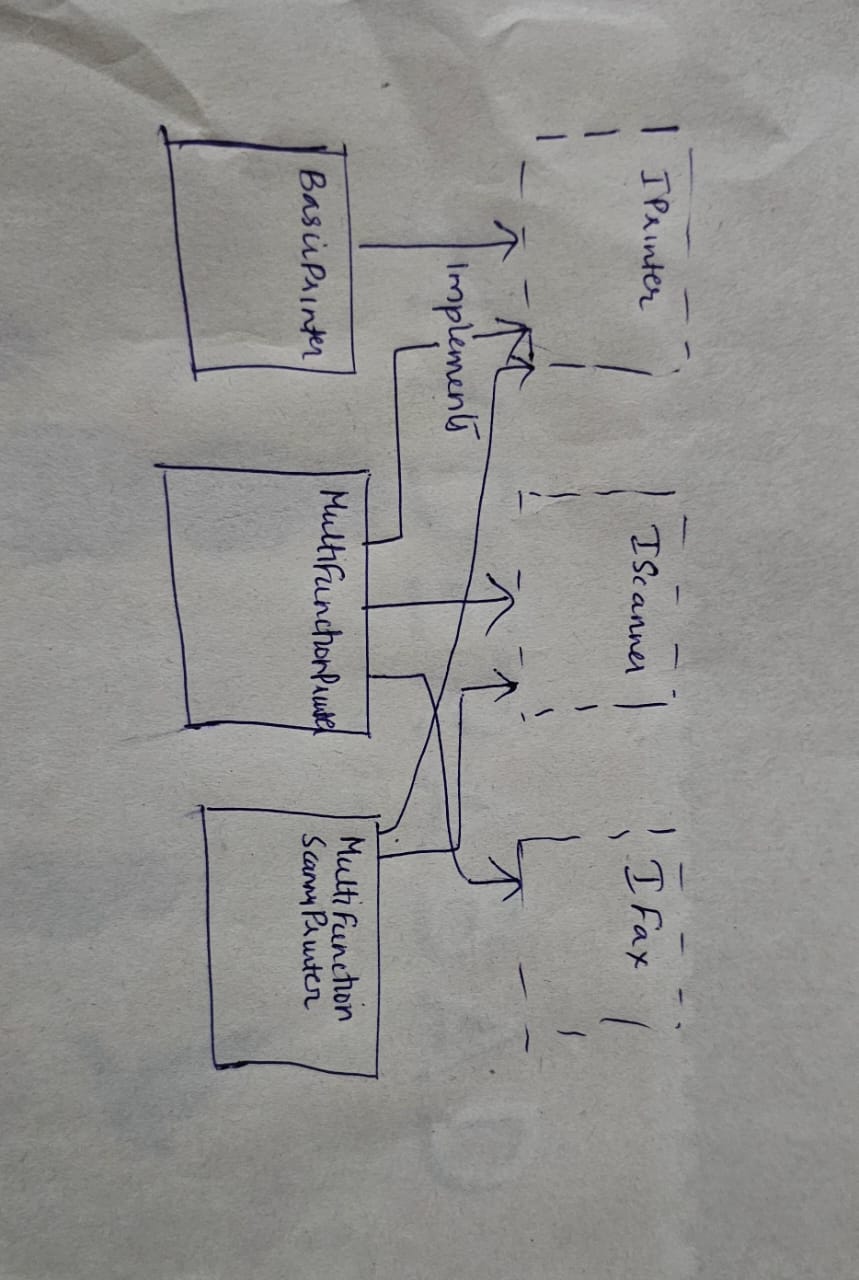 IPrinter
IScanner
IFax
Implements
BasicPrinter
MultiFunctionPrinter
MultiFunction
ScannyPrinter